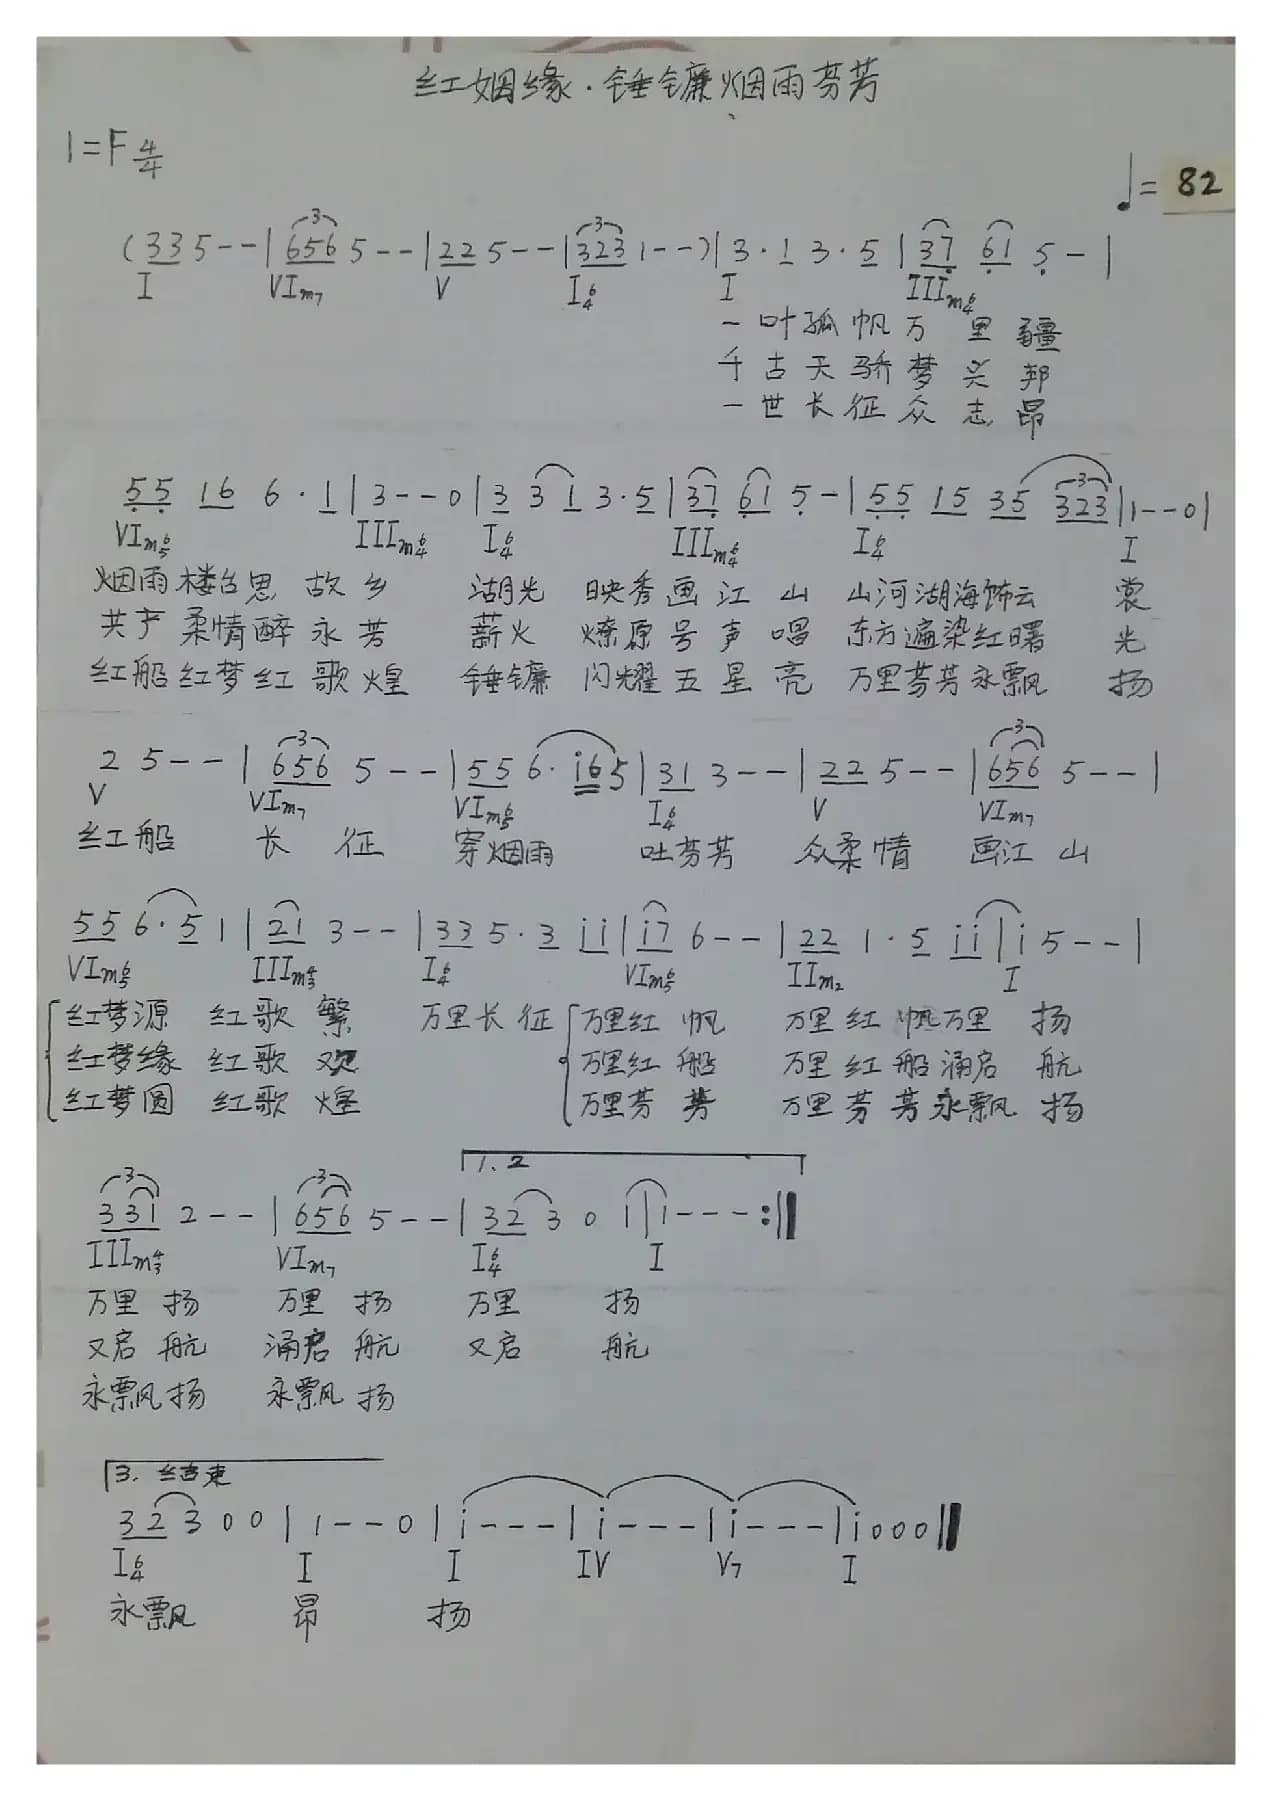 红姻缘·锤镰烟雨芬芳
1=F 4/4
♩= 82
(3 3 5 - - | 6 5 6 5 - - | 2 2 5 - - | 3 2 3 1 - - ) | 3 · 1 3 · 5 | 3 7 6 1 5 - |
I VIm7 V I6/4 I IIIm6/4
一叶孤帆万里疆
千古天骄梦兴邦
一世长征众志昂
5 5 1 6 6 · 1 | 3 - - 0 | 3 3 1 3 · 5 | 3 7 6 1 5 - | 5 5 1 5 3 5 3 2 3 | 1 - - 0 |
VIm6/5 IIIm6/4 I6/4 IIIm6/4 I6/4 I
烟雨楼台思故乡 湖光映秀画江山 山河湖海饰云裳
共产柔情醉永芳 薪火燎原号声唱 东方遍染红曙光
红船红梦红歌煌 锤镰闪耀五星亮 万里芬芳永飘扬
2 5 - - | 6 5 6 5 - - | 5 5 6 · i 6 5 | 3 1 3 - - | 2 2 5 - - | 6 5 6 5 - - |
V VIm7 VIm6/5 I6/4 V VIm7
红船 长征 穿烟雨 吐芬芳 众柔情 画江山
5 5 6 · 5 1 | 2 1 3 - - | 3 3 5 · 3 i i | i 7 6 - - | 2 2 1 · 5 i i | i 5 - - |
VIm6/5 IIIm4/3 I6/4 VIm6/5 IIm2 I
红梦源 红歌繁 万里长征 万里红帆 万里红帆万里扬
红梦缘 红歌欢 万里红船 万里红船涌启航
红梦圆 红歌煌 万里芬芳 万里芬芳永飘扬
1. 2
3 3 1 2 - - | 6 5 6 5 - - | 3 2 3 0 i | i - - - :‖
IIIm4/3 VIm7 I6/4 I
万里扬 万里扬 万里 扬
又启航 涌启航 又启 航
永飘扬 永飘扬
3. 结束
3 2 3 0 0 | 1 - - 0 | i - - - | i - - - | i - - - | i 0 0 0 ‖
I6/4 I I IV V7 I
永飘 昂 扬